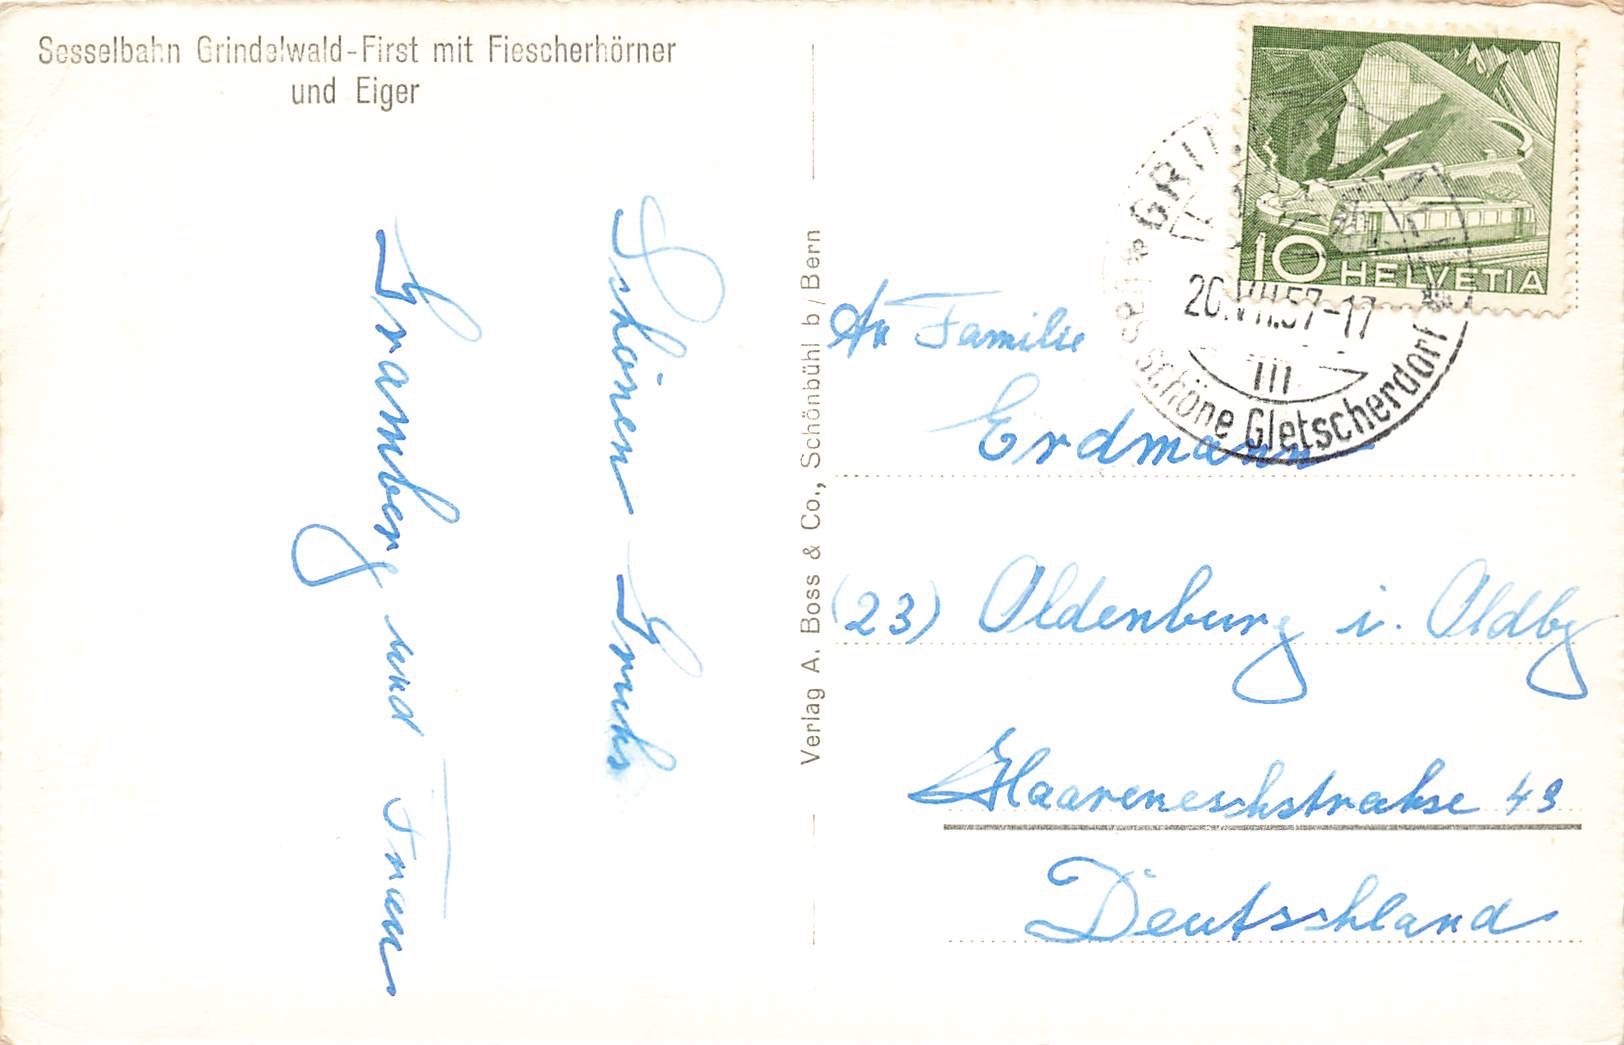 Sesselbahn Grindelwald-First mit Fiescherhörner
und Eiger
Schönen Gruß
Gramberg und Frau
Verlag A. Boss & Co., Schönbühl b/Bern
10 HELVETIA
20.VII.57-17
III
Schöne Gletscherdorf
An Familie
Erdmann
(23) Oldenburg i. Oldbg
Haareneschstraße 49
Deutschland